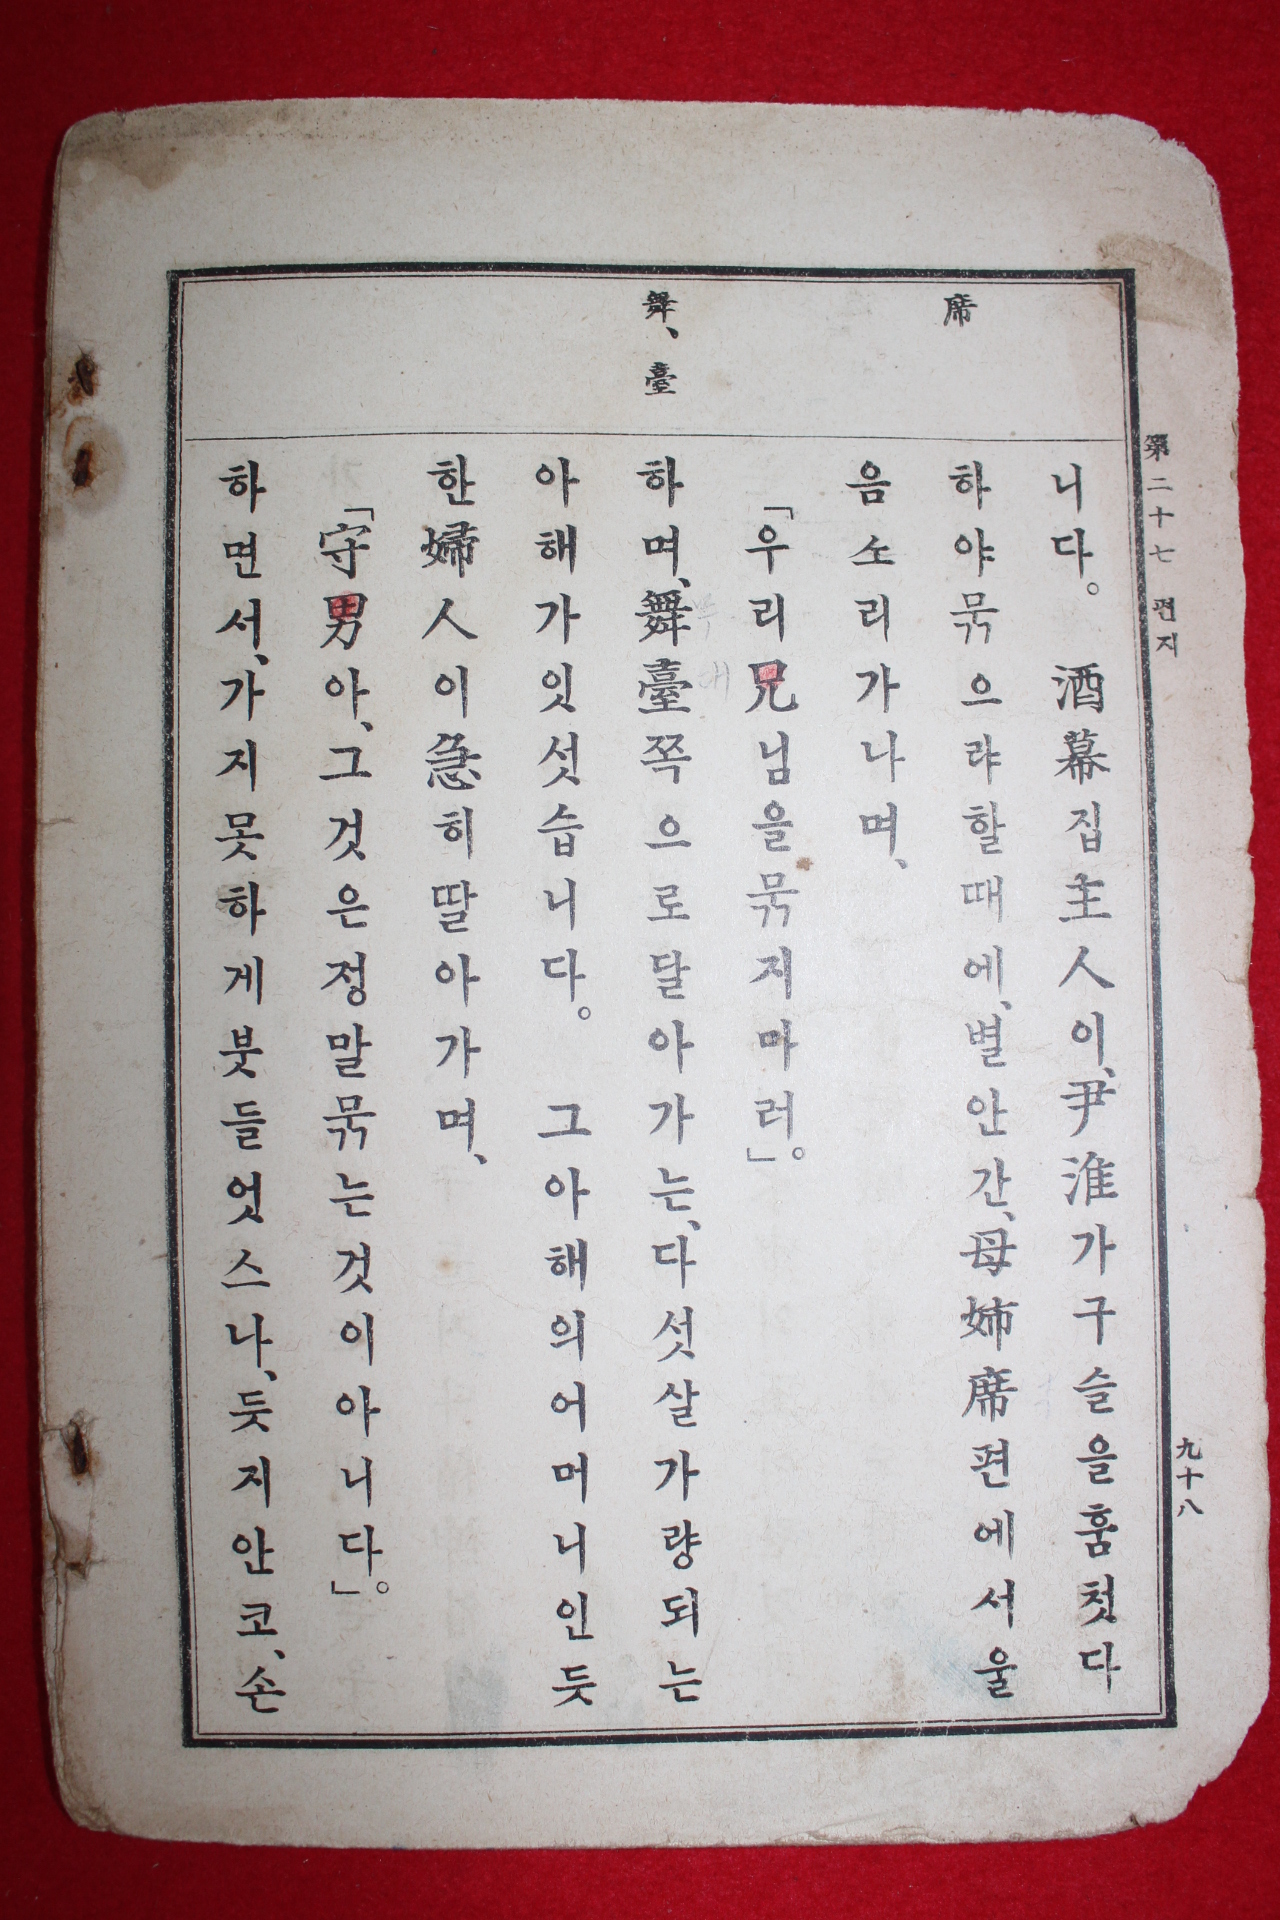 第二十七 편지
九十八
席
舞、臺
니다。 酒幕집主人이、尹淮가구슬을훔첫다
하야묶으랴할때에、별안간、母姉席편에서울
음소리가나며、
「우리兄님을묶지마러。」
하며、舞臺쪽으로달아가는、다섯살가량되는
아해가잇섯습니다。 그아해의어머니인듯
한婦人이急히딸아가며、
「守男아、그것은정말묶는것이아니다。」
하면서、가지못하게붓들엇스나、듯지안코、손